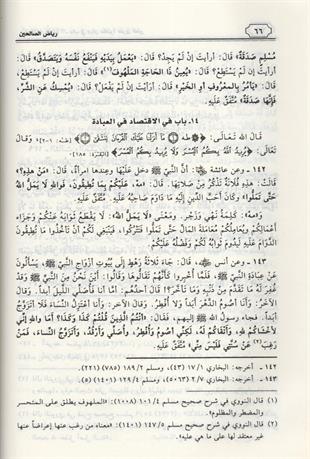 ٦٦
رياض الصالحين
مُسْلِمٍ صَدَقَةٌ» قَالَ: أَرَأَيْتَ إِنْ لَمْ يَجِدْ؟ قَالَ: «يَعْمَلُ بِيَدَيْهِ فَيَنْفَعُ نَفْسَهُ وَيَتَصَدَّقُ» قَالَ:
أَرَأَيْتَ إِنْ لَمْ يَسْتَطِعْ؟ قَالَ: «يُعِينُ ذَا الحَاجَةِ المَلْهُوفَ»(١) قَالَ: أَرَأَيْتَ إِنْ لَمْ يَسْتَطِعْ،
قَالَ: «يَأْمُرُ بِالمَعْرُوفِ أَوِ الخَيْرِ» قَالَ: أَرَأَيْتَ إِنْ لَمْ يَفْعَلْ؟ قَالَ: «يُمْسِكُ عَنِ الشَّرِّ،
فَإِنَّهَا صَدَقَةٌ» مُتَّفَقٌ عَلَيْهِ.
١٤ـ باب في الاقتصاد في العبادة
قَالَ اللهُ تَعَالَى: ﴿طه ۝ مَا أَنْزَلْنَا عَلَيْكَ الْقُرْآنَ لِتَشْقَى ۝﴾ [طه: ١ـ٢] وَقَالَ
تَعَالَى: ﴿يُرِيدُ اللَّهُ بِكُمُ الْيُسْرَ وَلَا يُرِيدُ بِكُمُ الْعُسْرَ﴾ [البقرة: ١٨٥].
١٤٢ ـ وعن عائشة ﷺ: أَنَّ النَّبِيَّ ﷺ دَخَلَ عَلَيْهَا وَعِنْدَهَا امْرَأَةٌ، قَالَ: «مَنْ هَذِهِ؟»
قَالَتْ: هَذِهِ فُلَانَةُ تَذْكُرُ مِنْ صَلَاتِهَا. قَالَ: «مَهْ، عَلَيْكُمْ بِمَا تُطِيقُونَ، فَوَاللهِ لَا يَمَلُّ اللهُ
حَتَّى تَمَلُّوا» وَكَانَ أَحَبُّ الدِّينِ إِلَيْهِ مَا دَاوَمَ صَاحِبُهُ عَلَيْهِ. مُتَّفَقٌ عَلَيْهِ.
و«مه»: كَلِمَةُ نَهْيٍ وَزَجْرٍ. ومعنى «لَا يَمَلُّ اللهُ»: لَا يَقْطَعُ ثَوَابَهُ عَنْكُمْ وَجَزَاءَ
أَعْمَالِكُمْ وَيُعَامِلُكُمْ مُعَامَلَةَ المَالِّ حَتَّى تَمَلُّوا فَتَتْرُكُوا، فَيَنْبَغِي لَكُمْ أَنْ تَأْخُذُوا مَا تُطِيقُونَ
الدَّوَامَ عَلَيْهِ لِيَدُومَ ثَوَابُهُ لَكُمْ وَفَضْلُهُ عَلَيْكُمْ.
١٤٣ ـ وعن أنس ﷺ، قال: جَاءَ ثَلَاثَةُ رَهْطٍ إِلَى بُيُوتِ أَزْوَاجِ النَّبِيِّ ﷺ، يَسْأَلُونَ
عَنْ عِبَادَةِ النَّبِيِّ ﷺ، فَلَمَّا أُخْبِرُوا كَأَنَّهُمْ تَقَالُّوهَا وَقَالُوا: أَيْنَ نَحْنُ مِنَ النَّبِيِّ ﷺ وَقَدْ
غُفِرَ لَهُ مَا تَقَدَّمَ مِنْ ذَنْبِهِ وَمَا تَأَخَّرَ؟ قَالَ أَحَدُهُمْ: أَمَّا أَنَا فَأُصَلِّي اللَّيْلَ أَبَداً. وَقَالَ
الآخَرُ: وَأَنَا أَصُومُ الدَّهْرَ أَبَداً وَلَا أُفْطِرُ. وَقَالَ الآخَرُ: وَأَنَا أَعْتَزِلُ النِّسَاءَ فَلَا أَتَزَوَّجُ
أَبَداً. فَجَاءَ رَسُولُ اللهِ ﷺ إِلَيْهِم، فَقَالَ: «أَنْتُمُ الَّذِينَ قُلْتُمْ كَذَا وَكَذَا؟ أَمَا وَاللهِ إِنِّي
لَأَخْشَاكُمْ لِلهِ، وَأَتْقَاكُمْ لَهُ، لَكِنِّي أَصُومُ وَأُفْطِرُ، وَأُصَلِّي وَأَرْقُدُ، وَأَتَزَوَّجُ النِّسَاءَ، فَمَنْ
رَغِبَ(٢) عَنْ سُنَّتِي فَلَيْسَ مِنِّي» مُتَّفَقٌ عَلَيْهِ.
١٤٢ ـ أخرجه: البخاري ١٧/١ (٤٣)، ومسلم ١٨٩/٢ (٧٨٥) (٢٢١).
١٤٣ ـ أخرجه: البخاري ٢/٧ (٥٠٦٣)، ومسلم ١٢٨/٤ (١٤٠١) (٥).
(١) قال النووي في شرح صحيح مسلم ١٠١/٤ (١٠٠٨): «الملهوف يطلق على المتحسر
والمضطر والمظلوم».
(٢) قال النووي في شرح صحيح مسلم ١٤٧/٥ (١٤٠١): «معناه من رغب عنها إعراضاً عنها
غير معتقد لها على ما هي عليه».